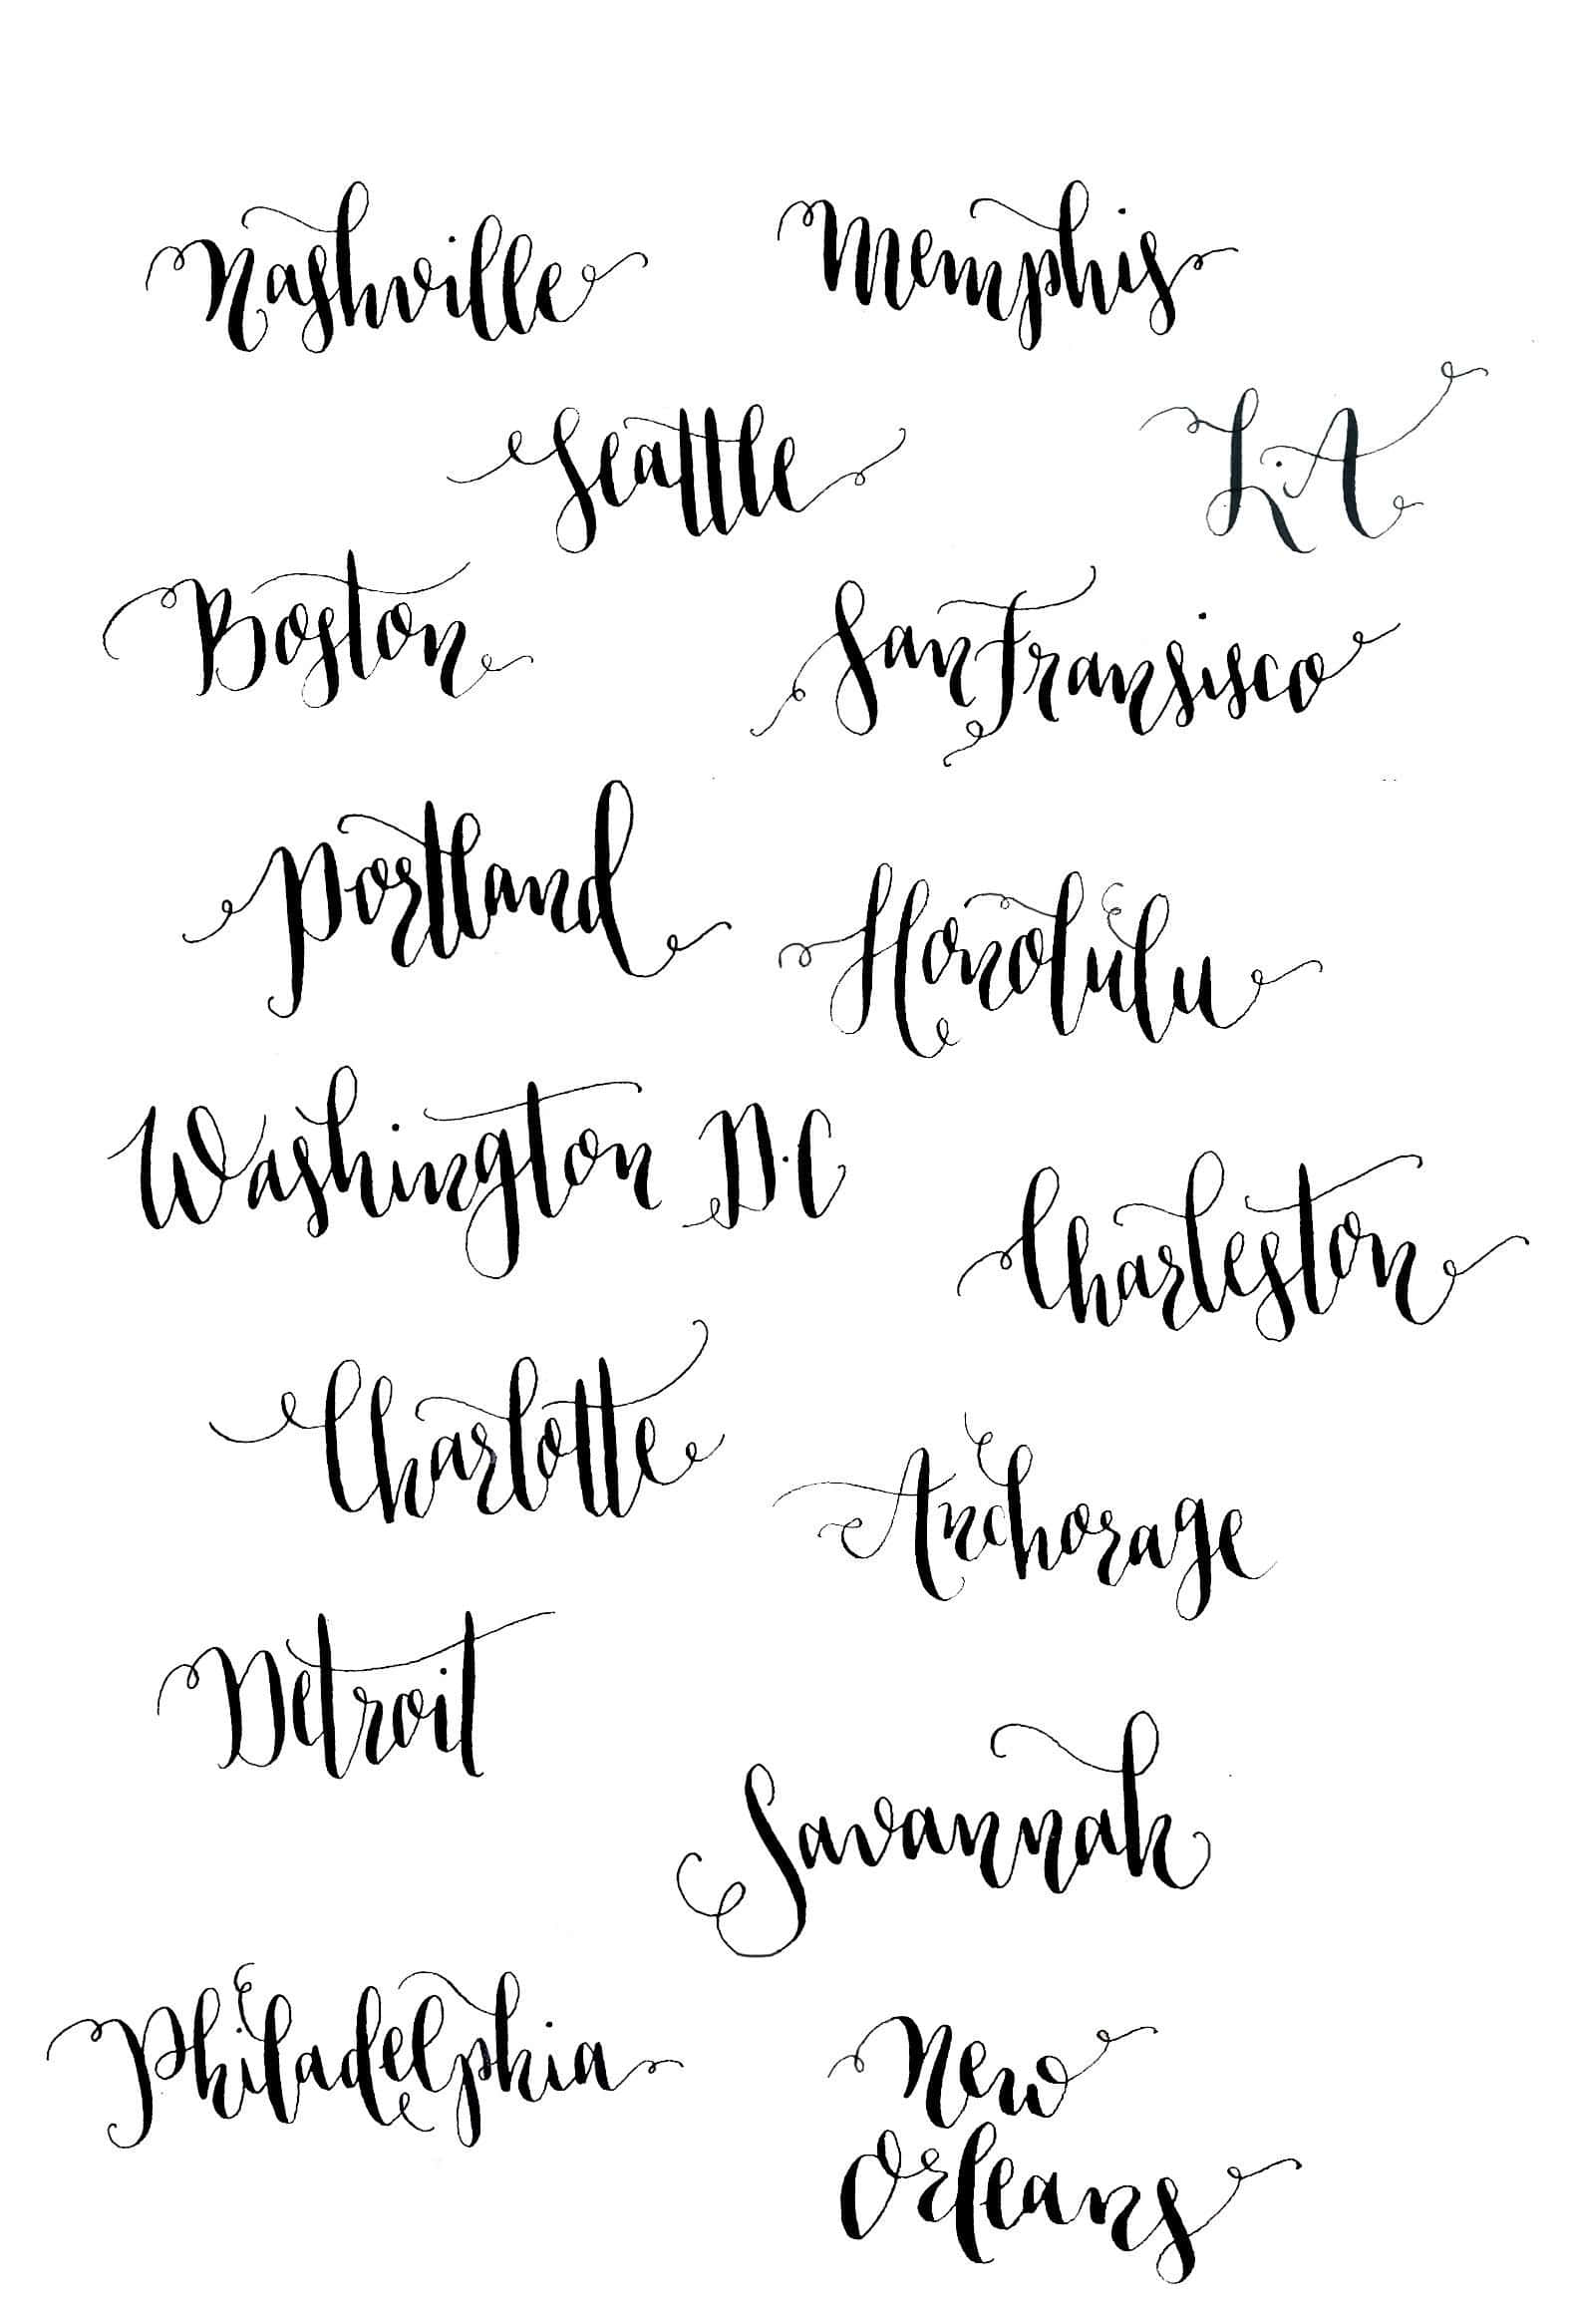 Nashville
Memphis
Seattle
L.A
Boston
San Fransisco
Portland
Honolulu
Washington D.C
Charleston
Charlotte
Anchorage
Detroit
Savannah
Philadelphia
New
Orleans